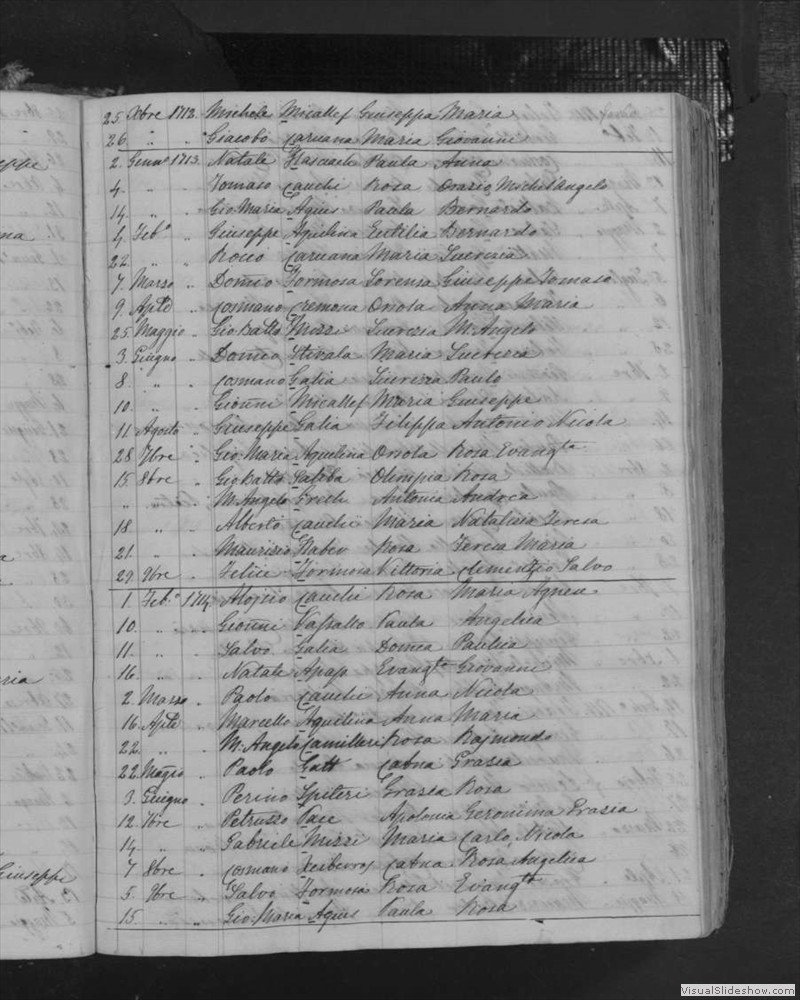 25. Xbre 1712. Michele Micallef Giuseppa Maria
26. „ „ Giacobo Caruana Maria Giovanni
2. Genn.º 1713. Natale Paula Anna
4. „ „ Tomaso Cauchi Rosa Orazio Michel'Angelo
14. „ „ Gio: Maria Agius Paula Bernardo
4. Feb.º „ Giuseppe Aquilina Eutilia Bernardo
22. „ „ Rocco Caruana Maria Lucrezia
7. Marzo „ Dom̃co Formosa Lorenza Giuseppe Tomaso
9. Aple „ Cosmano Cremona Orsola Anna Maria
25. Maggio „ Gio Batta Mizzi Lucrezia M: Angelo
3. Giugno „ Dom̃co Stivala Maria Lucrezia
8. „ „ Cosmano Galia Lucrezia Paulo
10. „ „ Gioñni Micallef Maria Giuseppe
11. Agosto „ Giuseppe Galia Filippa Antonio Nicola
28. 7bre „ Gio: Maria Aquilina Orsola Rosa Evang.ta
15. 8bre „ Gio Batta Saliba Olimpia Rosa
„ „ „ M: Angelo Grech Antonia Andrea
18. „ „ Alberto Cauchi Maria Natalizia Teresa
21. „ „ Maurizio Rosa Teresa Maria
29. 9bre „ Felice Formosa Vittoria Clementzio Salvo
1. Feb.º 1714. Alojsio Cauchi Rosa Maria Agnese
10. „ „ Gioñni Vassallo Paula Angelica
11. „ „ Salvo Galia Domca Paulica
16. „ „ Natale Apap Evang.ta Giovanni
2. Marzo „ Paolo Cauchi Anna Nicola
16. Aple „ Marcello Aquilina Anna Maria
22. „ „ M: Angelo Camilleri Rosa Rajmondo
22. Maggio „ Paolo Gatt Catña Grazia
3. Giugno „ Perino Spiteri Grazia Rosa
12. 7bre „ Petruzzo Pace Apolonia Geronima Grazia
14. „ „ Gabriele Mizzi Maria Carlo, Nicola
7. 8bre „ Cosmano Xeiberras Catña Rosa Angelica
5. 9bre „ Salvo Formosa Rosa Evang.ta
15. „ „ Gio: Maria Agius Paula Rosa
Giuseppe
VisualSlideshow.com